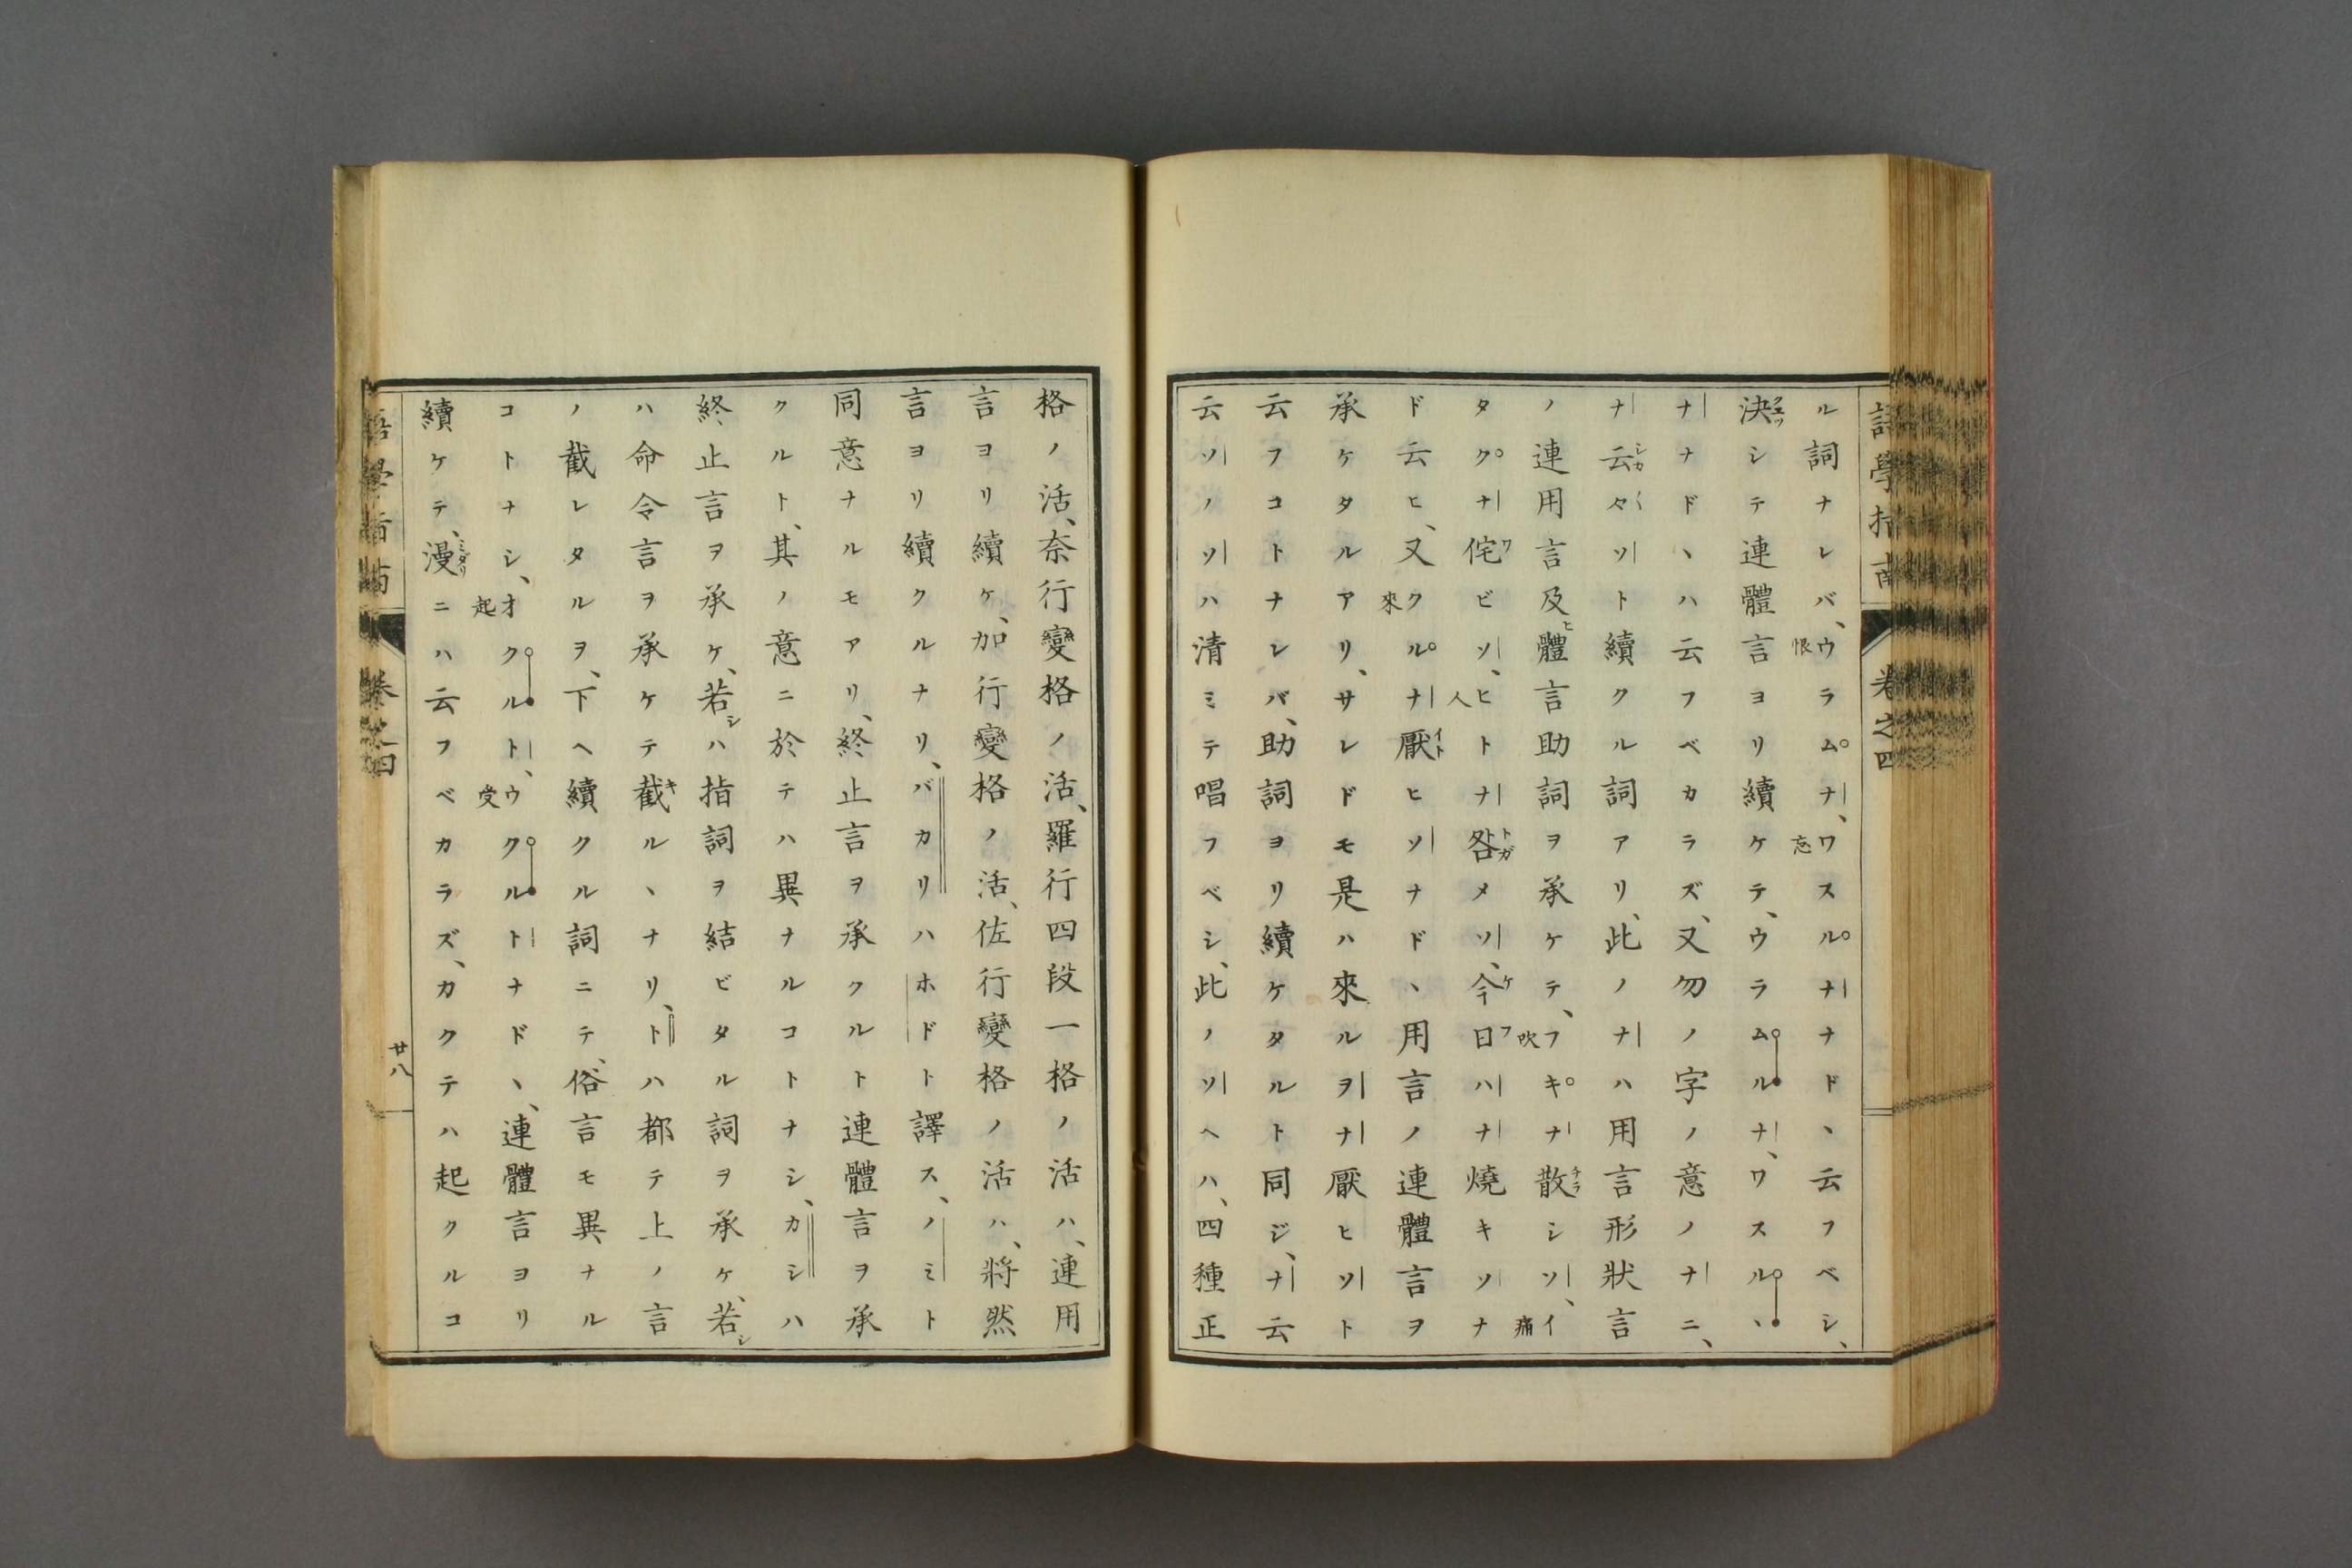 語學指南
卷之四
ル詞ナレバ、ウラムナ、ワスルナナドヽ云フベシ、
決シテ連體言ヨリ續ケテ、ウラムルナ、ワスルヽ
ナナドヽハ云フベカラズ、又勿ノ字ノ意ノナニ、
ナ云々ソト續クル詞アリ、此ノナハ用言形狀言
ノ連用言及ヒ體言助詞ヲ承ケテ、フキナ散シソ、イ
タクナ侘ビソ、ヒトナ咎メソ、今日ハナ燒キソナ
ド云ヒ、又クルナ厭ヒソナドヽ用言ノ連體言ヲ
承ケタルアリ、サレドモ是ハ來ルヲナ厭ヒソト
云フコトナレバ、助詞ヨリ續ケタルト同ジ、ナ云
云ソノソハ清ミテ唱フベシ、此ノソヘハ、四種正
格ノ活、奈行變格ノ活、羅行四段一格ノ活ハ、連用
言ヨリ續ケ、加行變格ノ活、佐行變格ノ活ハ、將然
言ヨリ續クルナリ、バカリハホドト譯ス、ノミト
同意ナルモアリ、終止言ヲ承クルト連體言ヲ承
クルト、其ノ意ニ於テハ異ナルコトナシ、カシハ
終止言ヲ承ケ、若シハ指詞ヲ結ビタル詞ヲ承ケ、若シ
ハ命令言ヲ承ケテ截ルヽナリ、トハ都テ上ノ言
ノ截レタルヲ、下ヘ續クル詞ニテ、俗言モ異ナル
コトナシ、オクルト、ウクルトナドヽ、連體言ヨリ
續ケテ、漫ニハ云フベカラズ、カクテハ起クルコ
語學指南
卷之四
廿八